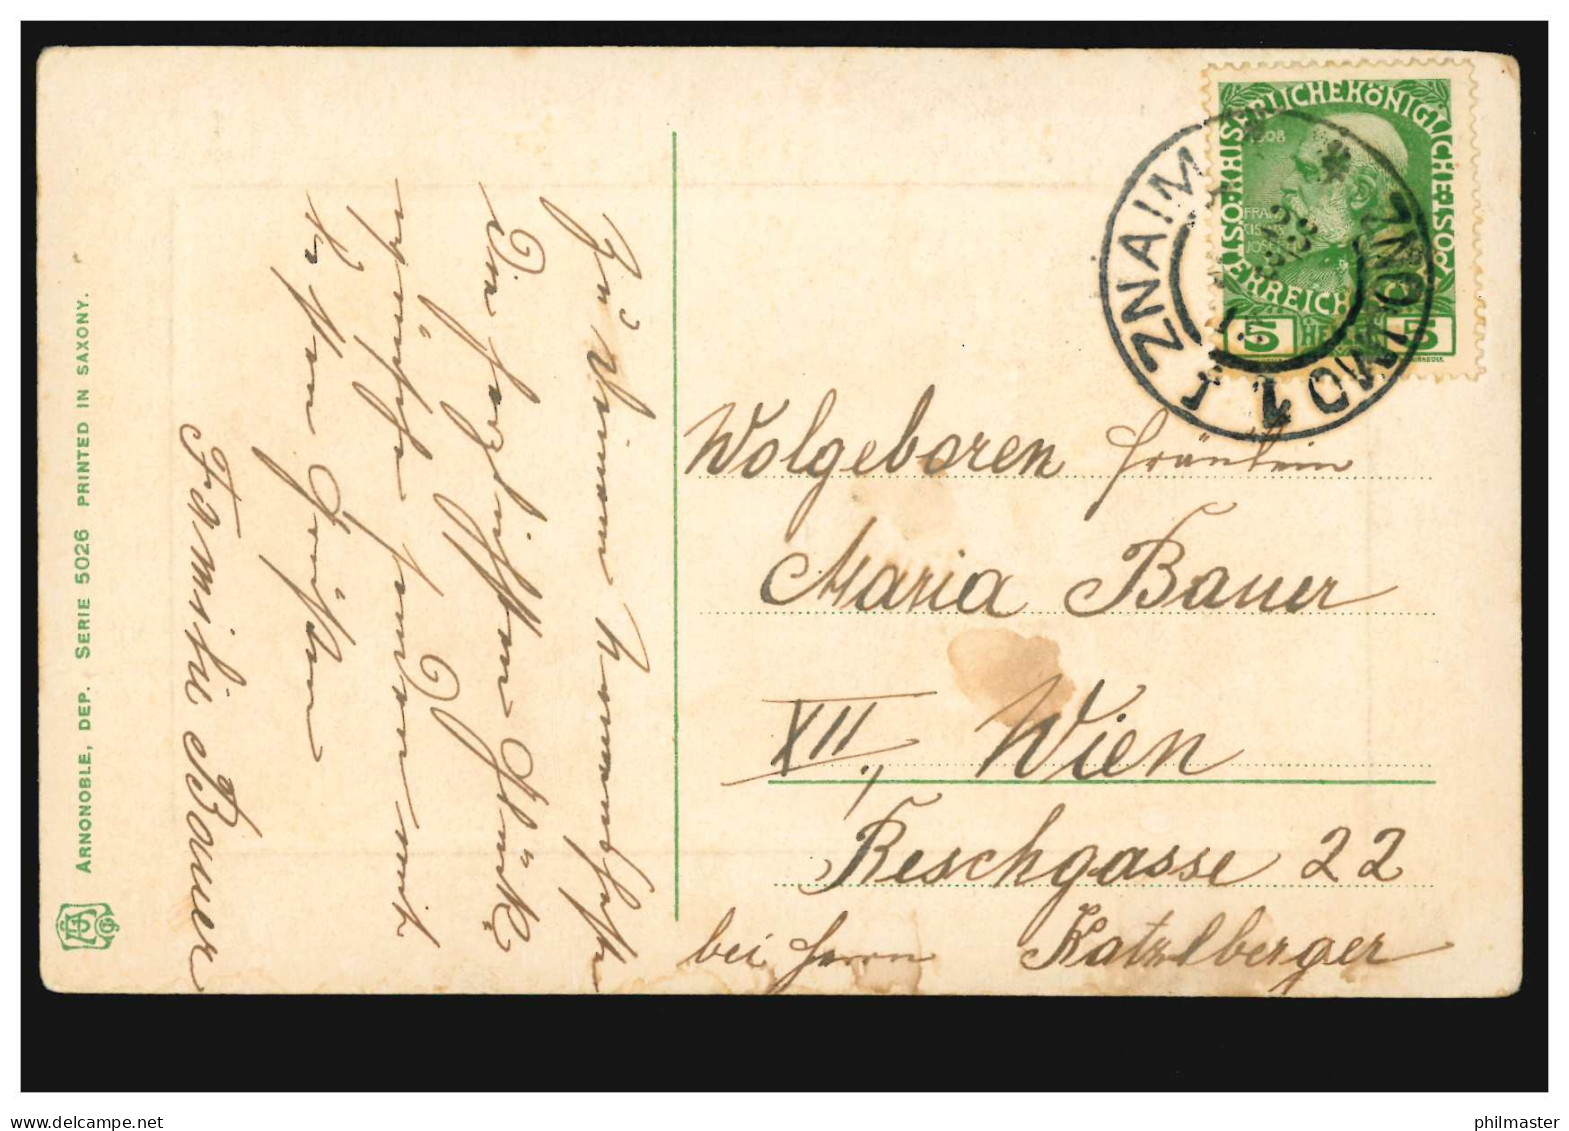 Zu Deinem Namensfeste
Die herzlichsten Glück-
wünsche sendet mit
besten Grüßen
Familie Bauer
ARNONOBLE, DEP. SERIE 5026 PRINTED IN SAXONY.
KAISERLICHE KÖNIGLICHE ÖSTERREICHISCHE POST
1908
FRANZ
JOSEF
5 HELLER 5
ZNAIM * * ZNOJMO 1
Wolgeboren Fräulein
Maria Bauer
XII., Wien
Reschgasse 22
bei Herrn Katzlberger
philmaster
delcampe.net